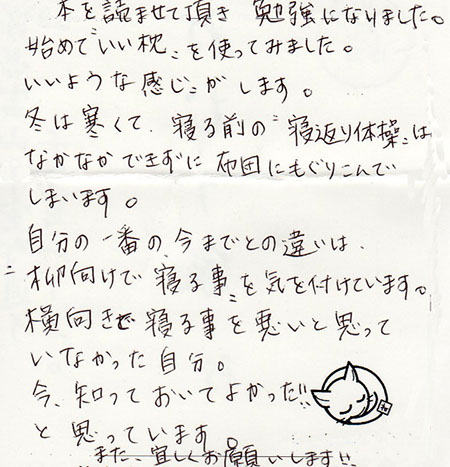 本を読ませて頂き 勉強になりました。
始めて"いい枕"を使ってみました。
いいような感じがします。
冬は寒くて、寝る前の"寝返り体操"は
なかなかできずに 布団にもぐりこんで
しまいます。
自分の一番の、今までとの違いは、
"向けで寝る事"を気を付けています。
横向きで寝る事を悪いと思って
いなかった自分。
今、知っておいてよかった!!
と思っています。
また、宜しくお願いします!!